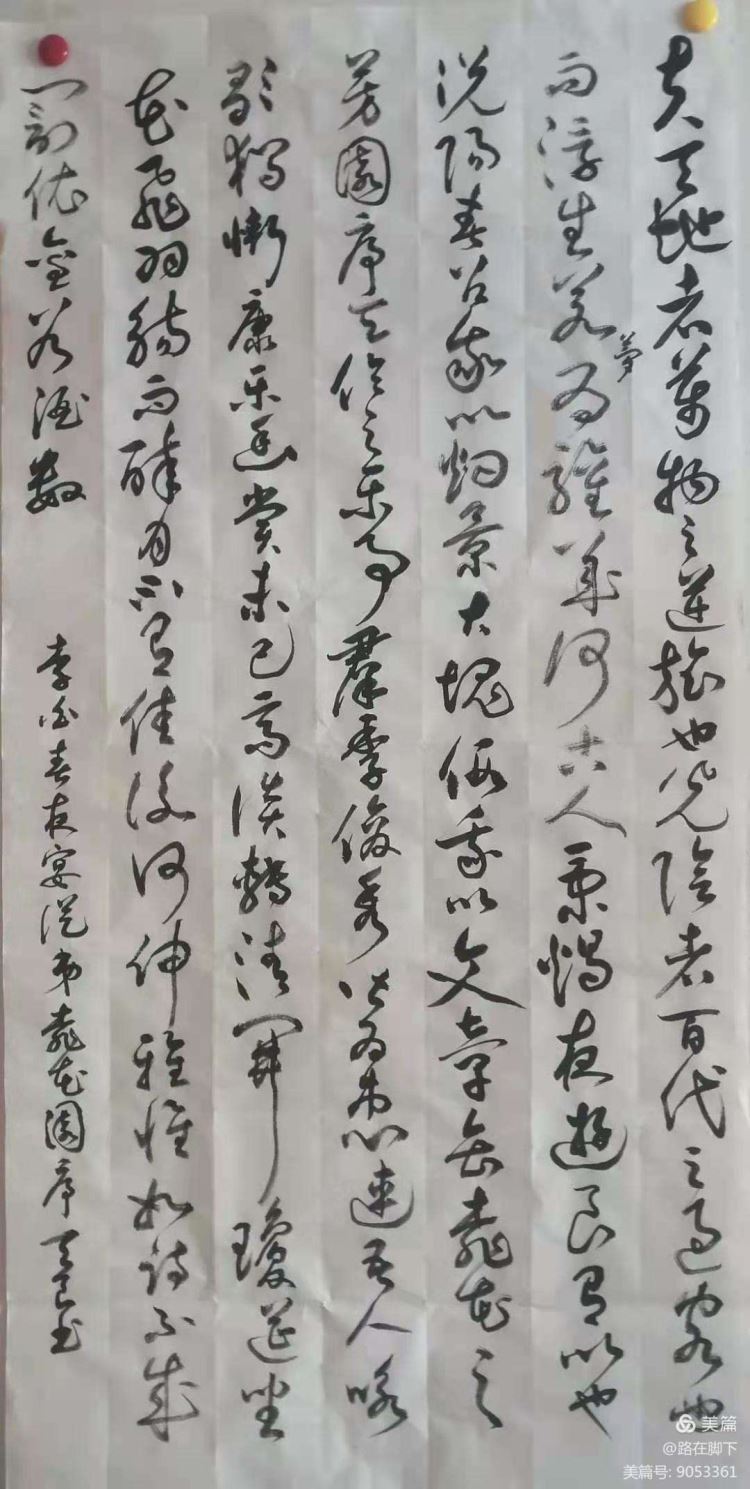 夫天地者萬物之逆旅也光陰者百代之過客也
而浮生若夢為歡幾何古人秉燭夜遊良有以也
況陽春召我以烟景大塊假我以文章會桃花之
芳園序天倫之樂事群季俊秀皆為惠連吾人咏
歌獨慚康樂幽賞未已高談轉清開瓊筵坐
花飛羽觴而醉月不有佳詠何伸雅懷如詩不成
罰依金谷酒數
李白春夜宴從弟桃花園序 书
美篇
@路在脚下
美篇号: 9053361